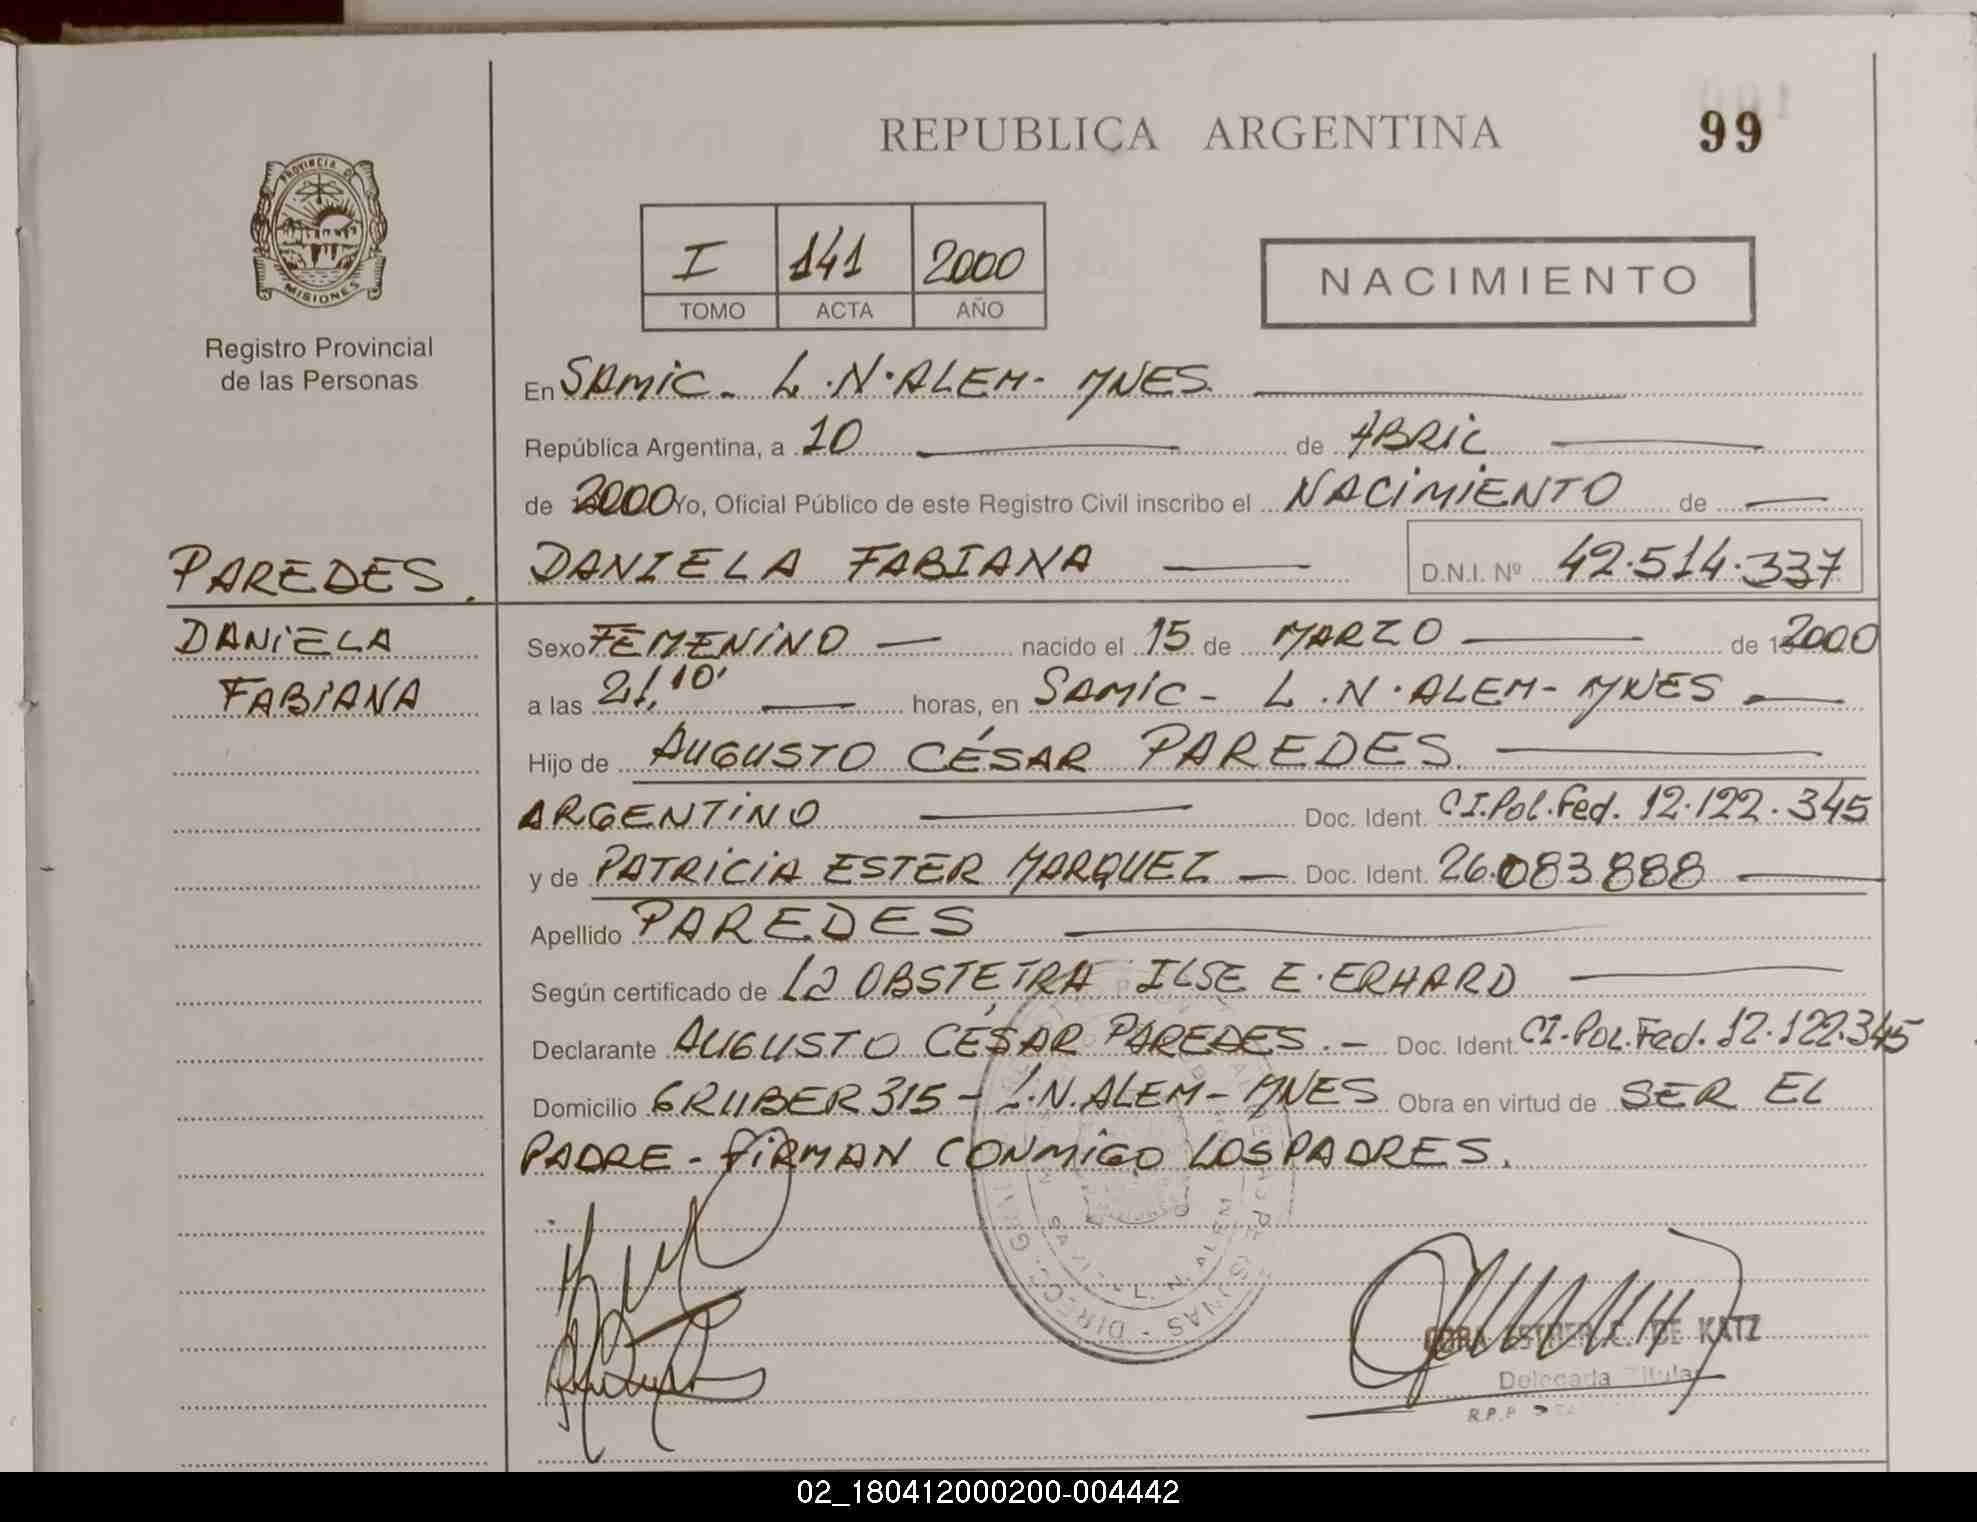 REPUBLICA ARGENTINA
99
PROVINCIA DE
MISIONES
Registro Provincial
de las Personas
I 141 2000
TOMO ACTA AÑO
NACIMIENTO
En SAMIC - L.N.ALEM - MNES.
República Argentina, a 10 de ABRIL
de 2000 Yo, Oficial Público de este Registro Civil inscribo el NACIMIENTO de
PAREDES.
DANIELA FABIANA D.N.I. Nº 42.514.337
DANIELA
FABIANA
Sexo FEMENINO nacido el 15 de MARZO de 2000
a las 21,10' horas, en SAMIC - L.N.ALEM - MNES
Hijo de AUGUSTO CÉSAR PAREDES
ARGENTINO Doc. Ident. CI.Pol.Fed. 12.122.345
y de PATRICIA ESTER MARQUEZ - Doc. Ident. 26.083888
Apellido PAREDES
Según certificado de La OBSTETRA ILSE E. ERHARD
Declarante AUGUSTO CÉSAR PAREDES. - Doc. Ident. CI.Pol.Fed. 12.122.345
Domicilio GRUBER 315 - L.N.ALEM - MNES Obra en virtud de SER EL
PADRE - FIRMAN CONMIGO LOS PADRES.
ESTHER C. DE KATZ
Delegada Titular
02_180412000200-004442